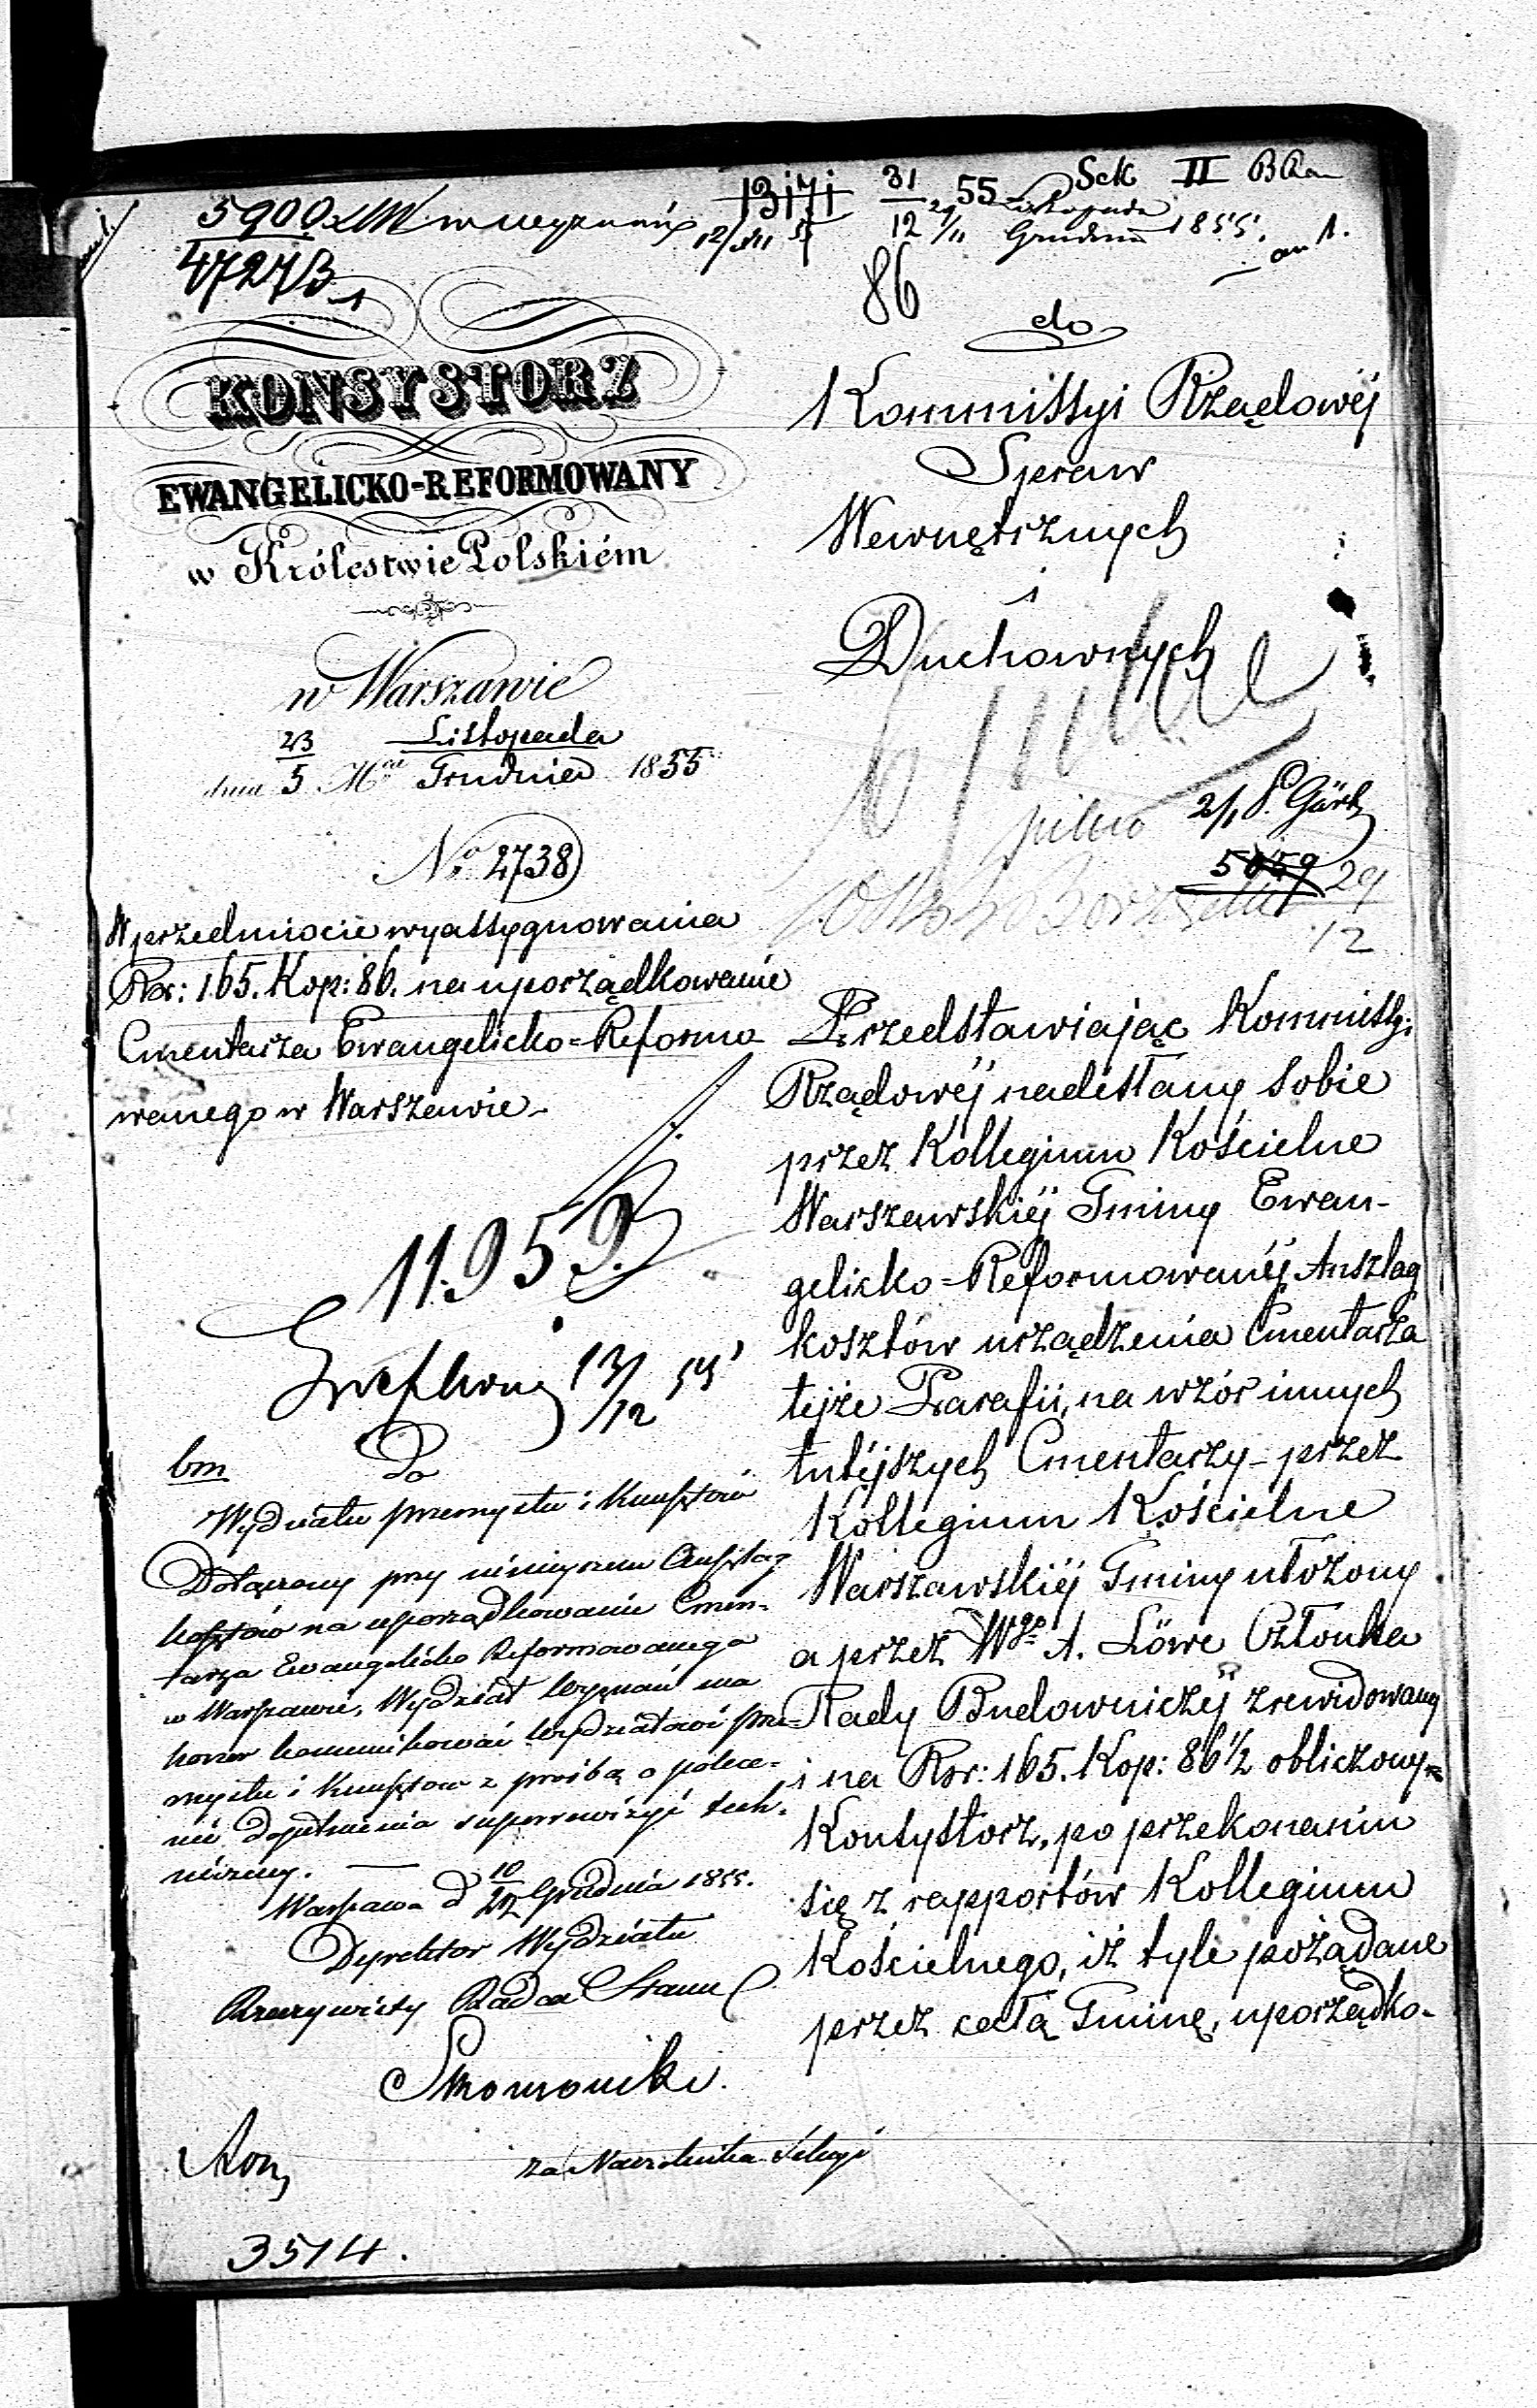 5900
4727/3
13171
31
12
55
Sek II
29/11 Listopada
Grudnia 1855.
an 1.
86
KONSYSTORZ
EWANGELICKO-REFORMOWANY
w Królestwie Polskiém
w Warszawie
dnia 23/5 Mca Listopada/Grudnia 1855
No 2738
W przedmiocie wyassygnowania
Rsr: 165. Kop: 86. na uporządkowanie
Cmentarza Ewangelicko-Reformo-
wanego w Warszawie.
11.959.
13/12 55
bm
Do
Wydziału przemysłu i Kunsztów
Dołączony przy niniejszem Anszlag
kosztów na uporządkowanie Cmen-
tarza Ewangelicko Reformowanego
w Warszawie, Wydział Wyznań ma
honor komunikować Wydziałowi prze-
mysłu i Kunsztów z prośbą o polece-
nie dopełnienia superrewizyi tech-
nicznej. —
Warszawa d 10/22 Grudnia 1855.
Dyrektor Wydziału
Rzeczywisty Radca Stanu
za Naczelnika Sekcyi
3514.
do
Kommissyi Rządowéj
Spraw
Wewnętrznych
i
Duchownych
pilno
2/1
5059
29
12
Przedstawiając Kommissyi
Rządowéj nadesłany sobie
przez Kollegium Kościelne
Warszawskiéj Gminy Ewan-
gelicko-Reformowanéj Anszlag
kosztów urządzenia Cmentarza
tejże Parafii, na wzór innych
tutéjszych Cmentarzy - przez
Kollegium Kościelne
Warszawskiéj Gminy ułożony
a przez Wgo A. Löwe Członka
Rady Budowniczéj zrewidowany
i na Rsr: 165. Kop: 86½ obliczony,
Konsystorz, po przekonaniu
się z rapportów Kollegium
Kościelnego, iż tyle pożądane
przez całą Gminę, uporządko-